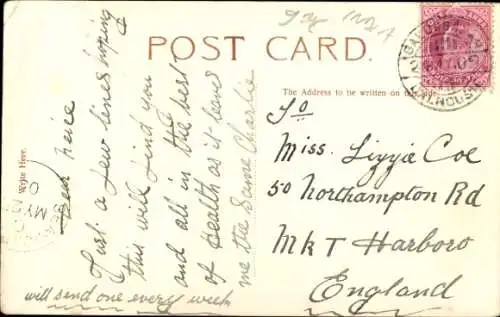 POST CARD.
The Address to be written on this side.
Write Here.
Dear Neice
Just a few lines hoping
this will find you
and all in the best
of health as it leaves
me the same Charlie
will send one every week
To
Miss. Lizzie Coe
50 Northampton Rd
Mkt Harboro
England
DALHOUSIE